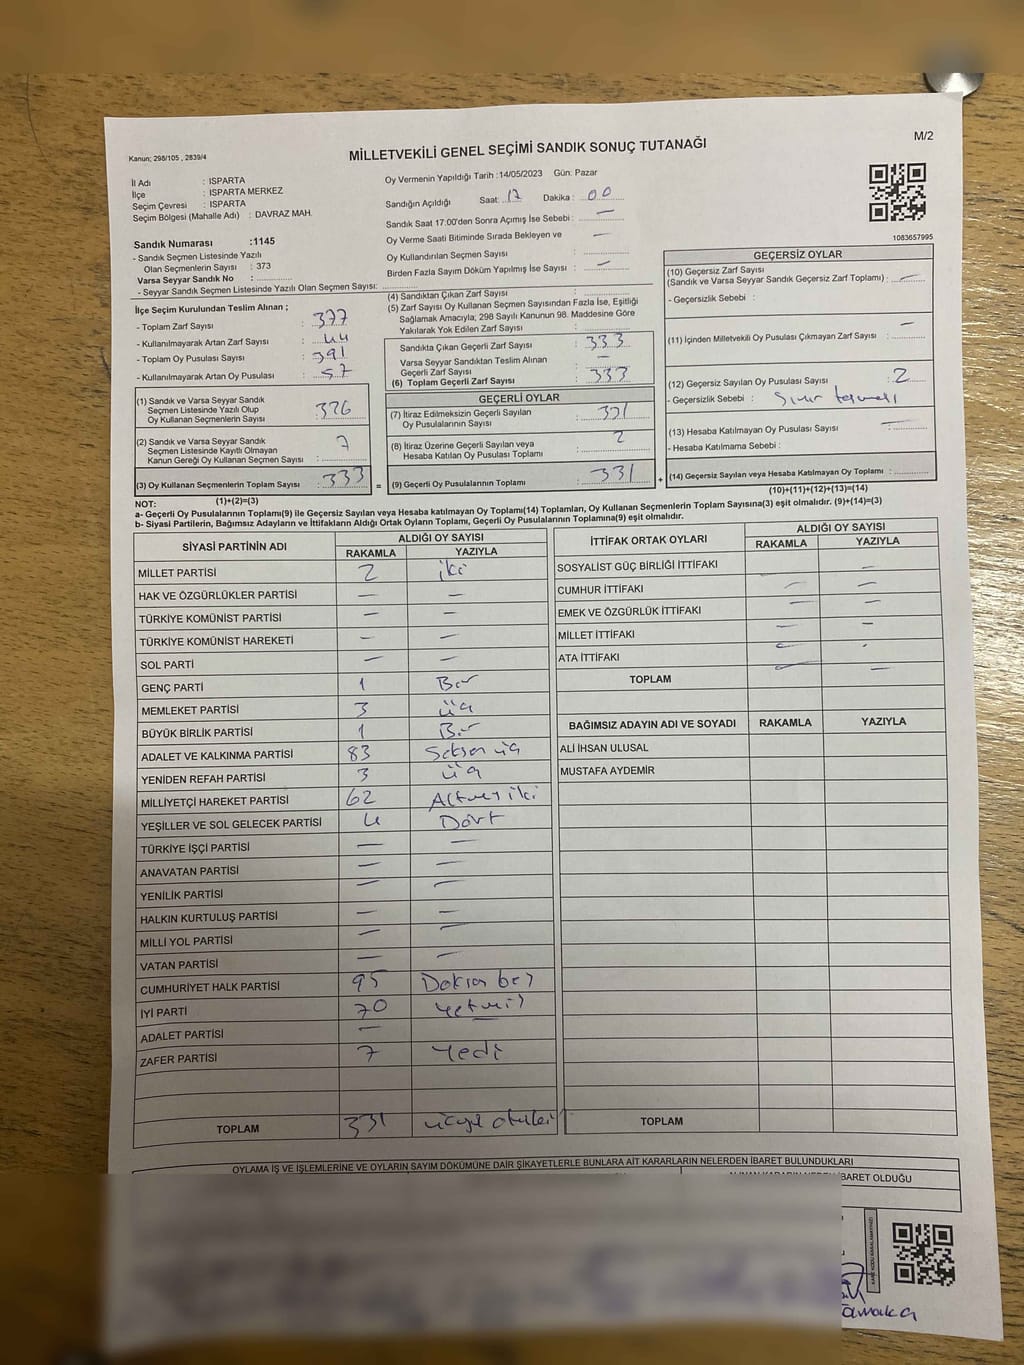 M/2
Kanun; 298/105 , 2839/4
MİLLETVEKİLİ GENEL SEÇİMİ SANDIK SONUÇ TUTANAĞI
İl Adı : ISPARTA
İlçe : ISPARTA MERKEZ
Seçim Çevresi : ISPARTA
Seçim Bölgesi (Mahalle Adı) : DAVRAZ MAH.
Sandık Numarası :1145
- Sandık Seçmen Listesinde Yazılı
Olan Seçmenlerin Sayısı : 373
Varsa Seyyar Sandık No :
- Seyyar Sandık Seçmen Listesinde Yazılı Olan Seçmen Sayısı:
Oy Vermenin Yapıldığı Tarih :14/05/2023 Gün: Pazar
Sandığın Açıldığı Saat: 17 Dakika : 00
Sandık Saat 17:00'den Sonra Açımış İse Sebebi : —
Oy Verme Saati Bitiminde Sırada Bekleyen ve —
Oy Kullandırılan Seçmen Sayısı :
Birden Fazla Sayım Döküm Yapılmış İse Sayısı : —
1083657995
İlçe Seçim Kurulundan Teslim Alınan ;
- Toplam Zarf Sayısı : 377
- Kullanılmayarak Artan Zarf Sayısı : 44
- Toplam Oy Pusulası Sayısı : 391
- Kullanılmayarak Artan Oy Pusulası : 57
(1) Sandık ve Varsa Seyyar Sandık
Seçmen Listesinde Yazılı Olup
Oy Kullanan Seçmenlerin Sayısı : 326
(2) Sandık ve Varsa Seyyar Sandık
Seçmen Listesinde Kayıtlı Olmayan
Kanun Gereği Oy Kullanan Seçmen Sayısı : 7
(3) Oy Kullanan Seçmenlerin Toplam Sayısı : 333 =
(1)+(2)=(3)
(4) Sandıktan Çıkan Zarf Sayısı :
(5) Zarf Sayısı Oy Kullanan Seçmen Sayısından Fazla İse, Eşitliği
Sağlamak Amacıyla; 298 Sayılı Kanunun 98. Maddesine Göre
Yakılarak Yok Edilen Zarf Sayısı :
Sandıkta Çıkan Geçerli Zarf Sayısı : 333
Varsa Seyyar Sandıktan Teslim Alınan —
Geçerli Zarf Sayısı :
(6) Toplam Geçerli Zarf Sayısı : 333
GEÇERLİ OYLAR
(7) İtiraz Edilmeksizin Geçerli Sayılan 331
Oy Pusulalarının Sayısı :
(8) İtiraz Üzerine Geçerli Sayılan veya 2
Hesaba Katılan Oy Pusulası Toplamı :
(9) Geçerli Oy Pusulalarının Toplamı : 331 +
GEÇERSİZ OYLAR
(10) Geçersiz Zarf Sayısı
(Sandık ve Varsa Seyyar Sandık Geçersiz Zarf Toplamı) : —
- Geçersizlik Sebebi :
(11) İçinden Milletvekili Oy Pusulası Çıkmayan Zarf Sayısı : —
(12) Geçersiz Sayılan Oy Pusulası Sayısı : 2
- Geçersizlik Sebebi : Sınır
(13) Hesaba Katılmayan Oy Pusulası Sayısı : —
- Hesaba Katılmama Sebebi :
(14) Geçersiz Sayılan veya Hesaba Katılmayan Oy Toplamı :
(10)+(11)+(12)+(13)=(14)
NOT:
a- Geçerli Oy Pusulalarının Toplamı(9) ile Geçersiz Sayılan veya Hesaba katılmayan Oy Toplamı(14) Toplamları, Oy Kullanan Seçmenlerin Toplam Sayısına(3) eşit olmalıdır. (9)+(14)=(3)
b- Siyasi Partilerin, Bağımsız Adayların ve İttifakların Aldığı Ortak Oyların Toplamı, Geçerli Oy Pusulalarının Toplamına(9) eşit olmalıdır.
SİYASİ PARTİNİN ADI ALDIĞI OY SAYISI
RAKAMLA YAZIYLA
MİLLET PARTİSİ 2 iki
HAK VE ÖZGÜRLÜKLER PARTİSİ — —
TÜRKİYE KOMÜNİST PARTİSİ — —
TÜRKİYE KOMÜNİST HAREKETİ — —
SOL PARTİ — —
GENÇ PARTİ 1 Bir
MEMLEKET PARTİSİ 3 üç
BÜYÜK BİRLİK PARTİSİ 1 Bir
ADALET VE KALKINMA PARTİSİ 83 Seksen üç
YENİDEN REFAH PARTİSİ 3 üç
MİLLİYETÇİ HAREKET PARTİSİ 62 Altmış iki
YEŞİLLER VE SOL GELECEK PARTİSİ 4 Dört
TÜRKİYE İŞÇİ PARTİSİ — —
ANAVATAN PARTİSİ — —
YENİLİK PARTİSİ — —
HALKIN KURTULUŞ PARTİSİ — —
MİLLİ YOL PARTİSİ — —
VATAN PARTİSİ — —
CUMHURİYET HALK PARTİSİ 95 Doksan beş
İYİ PARTİ 70 Yetmiş
ADALET PARTİSİ — —
ZAFER PARTİSİ 7 Yedi
TOPLAM 331
İTTİFAK ORTAK OYLARI ALDIĞI OY SAYISI
RAKAMLA YAZIYLA
SOSYALİST GÜÇ BİRLİĞİ İTTİFAKI —
CUMHUR İTTİFAKI — —
EMEK VE ÖZGÜRLÜK İTTİFAKI — —
MİLLET İTTİFAKI — —
ATA İTTİFAKI —
TOPLAM — —
BAĞIMSIZ ADAYIN ADI VE SOYADI RAKAMLA YAZIYLA
ALİ İHSAN ULUSAL
MUSTAFA AYDEMİR
TOPLAM
OYLAMA İŞ VE İŞLEMLERİNE VE OYLARIN SAYIM DÖKÜMÜNE DAİR ŞİKAYETLERLE BUNLARA AİT KARARLARIN NELERDEN İBARET BULUNDUKLARI
İBARET OLDUĞU